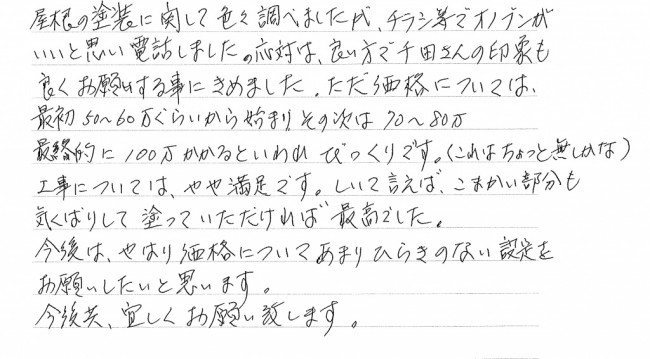 屋根の塗装に関して色々調べましたが、チラシ等でオノデンが
いいと思い電話しました。応対は、良い方で千田さんの印象も
良くお願いする事にきめました。ただ価格については、
最初50～60万ぐらいから始まりその次は70～80万
最終的に100万かかるといわれびっくりです。(これはちょっと無しかな)
工事については、やや満足です。しいて言えば、こまかい部分も
気くばりして塗っていただければ最高でした。
今後は、やはり価格についてあまりひらきのない設定を
お願いしたいと思います。
今後共、宜しくお願い致します。